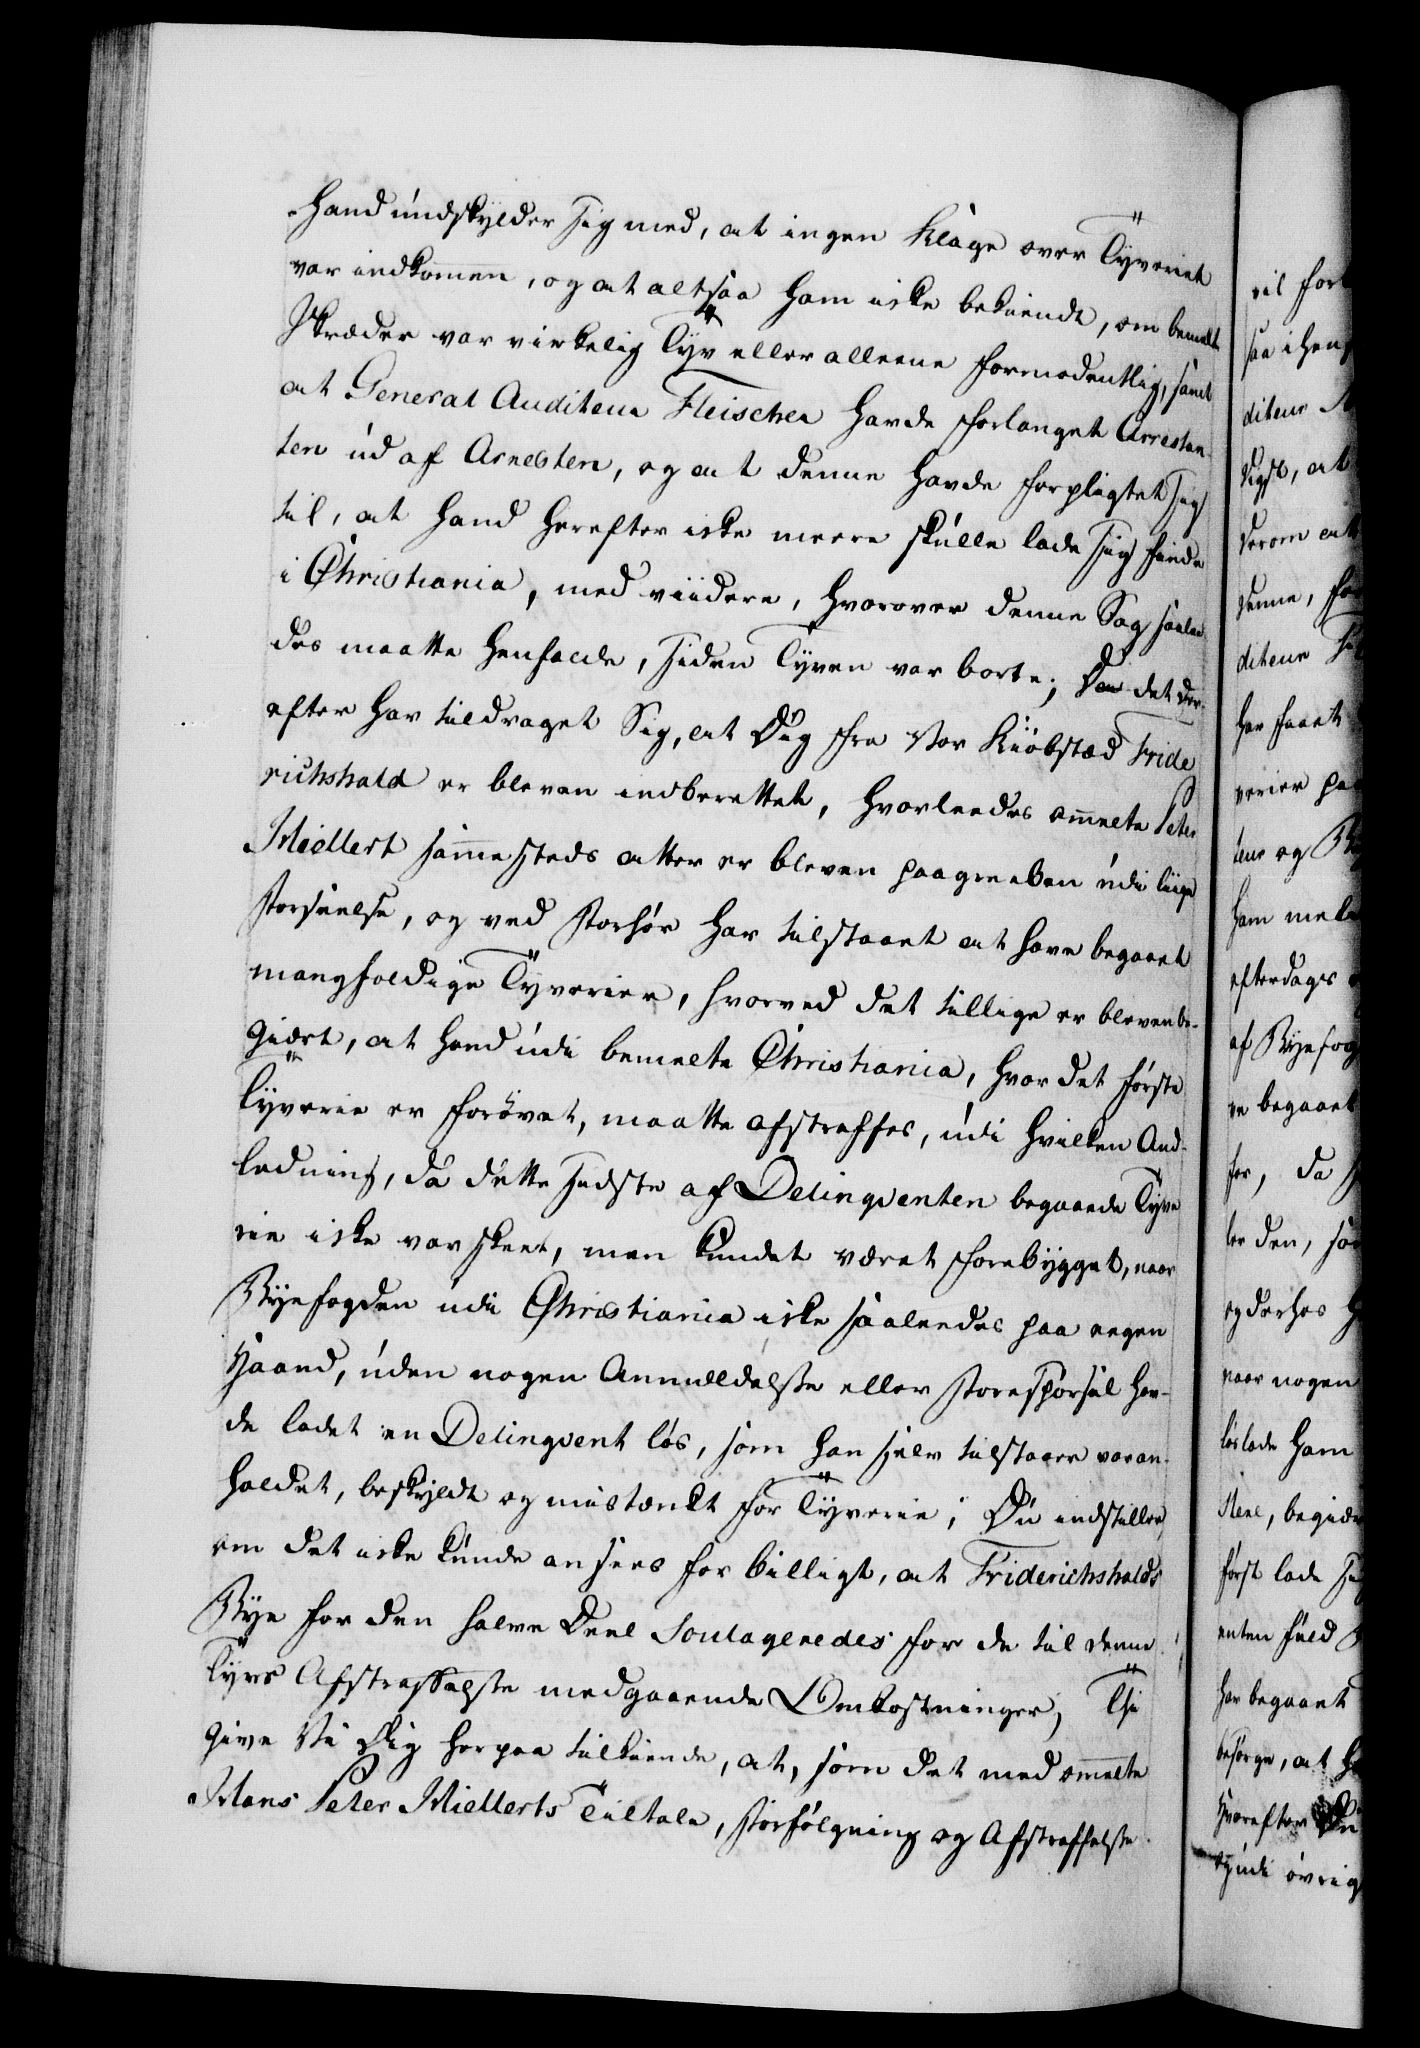 Hand undskylder sig med, at ingen Klage over Tyveriet
var indkommen, og at altsaa ham icke bekiendt, om bemelte
Skræder var virkelig Tyv eller alleene formodentlig, samt
at General Auditeur Fleischer havde forlanget Arrestan-
ten ud af Arresten, og at denne havde forpligtet sig
til, at hand herefter icke meere skulle lade sig finde
i Christiania, med viidere, hvorover denne Sag saale-
des maatte henfalde, siden Tyven var borte; Da det der-
efter har tildraget Sig, at Dig fra Vor Kiøbstæd Fride
richshald er bleven indberettet, hvorleedes ommelte Peter
Miellert sammesteds atter er bleven paagreeben udi liige
Forseelse, og ved Forhør har tilstaaet at have begaaet
mangfoldige Tyverier, hvorved det tillige er bleven be-
giært, at hand udi bemelte Christiania, hvor det første
Tyverie er forøvet, maatte afstraffes, udi hvilken And-
ledning, da dette sidste af Delinqventen begaaede Tyve
rie icke var skeet, men kundet været forebygget, naar
Byefogden udi Christiania icke saaleedes paa eegen
Haand, uden nogen Anmeldelse eller Forespørsel hav-
de ladet en Delinqvent løs, som han selv tilstaaer var an-
holdet, beskyldt og mistænkt for Tyverie; Du indstiller,
om det icke kunde ansees for billigt, at Friderichshalds
Bye for den halve Deel Soulageredes for de til denne
Tyvs Afstraffelse medgaaende Omkostninger; Thi
give Vi Dig herpaa tilkiende, at, som det med ommelte
Mons Peter Miellerts Tiltale, Forfølgning og Afstraffelse